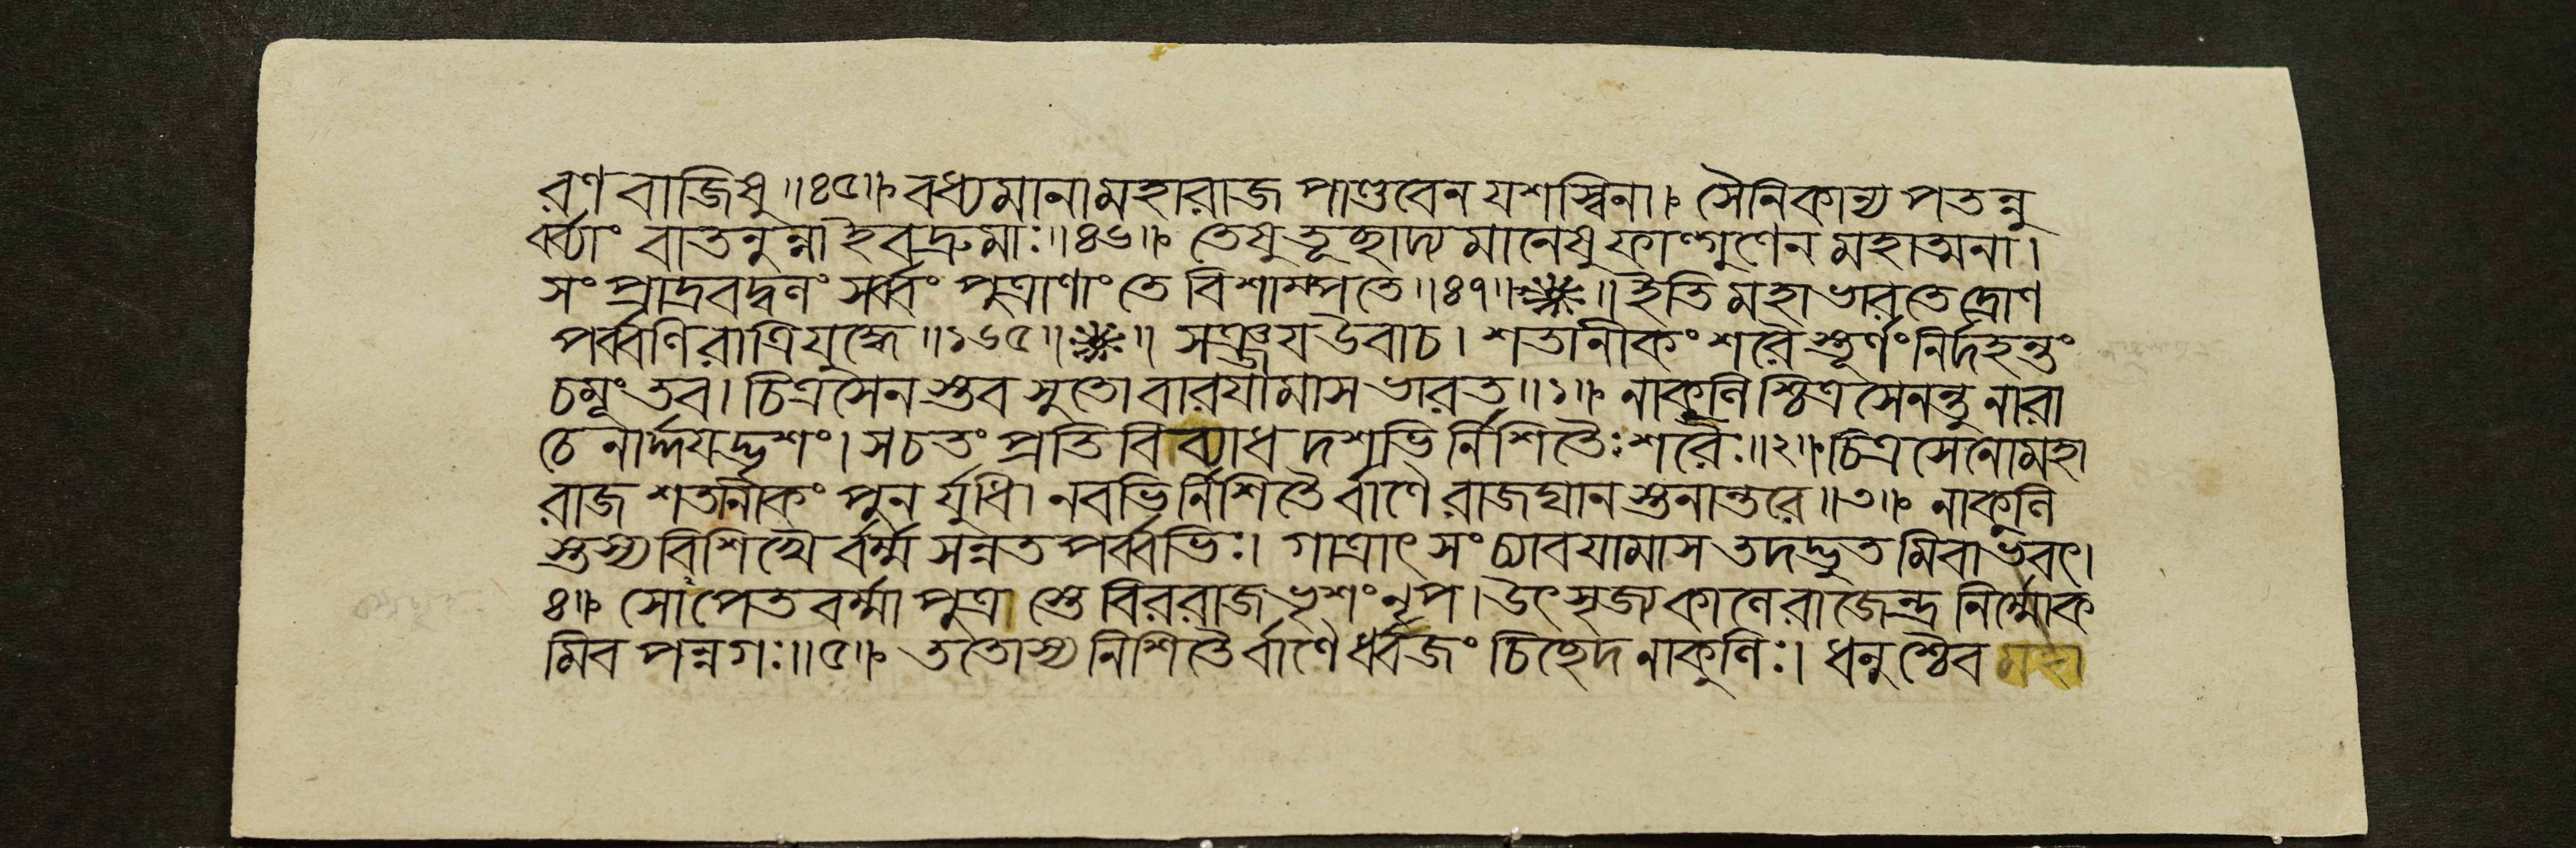 রণবাজিষু॥৪৫॥ বধ্যমানামহারাজ পাণ্ডবেন যশস্বিনা। সৈনিকান্য পতন্নু
র্ব্ব্যাং বাতনুন্না ইবদ্রুমাঃ॥৪৬॥ তেষুতূত্সাদ্যমানেষু ফাল্গুণেন মহাত্মনা।
সংপ্রাদ্রবদ্বলং সর্ব্বং পুত্রাণাং তে বিশাম্পতে॥৪৭॥ ॥ ইতি মহাভারতে দ্রোণ
পর্ব্বণি রাত্রিযুদ্ধে॥১৬৫॥ ॥ সঞ্জয উবাচ। শতানীকং শরৈস্তূর্ণং নির্দহন্তং
চমূং তব। চিত্রসেন স্তব সুতো বারযামাস ভারত॥১॥ নাকুলি শ্চিত্রসেনন্তু নারা
চেনার্দ্দযদ্ভৃশং। সচতং প্রতিবিব্যাধ দশভি র্নিশিতৈঃ শরৈঃ॥২॥ চিত্রসেনোমহা
রাজ শতানীকং পুন র্যুধি। নবভি র্নিশিতৈ র্বাণৈ রাজঘান স্তনান্তরে॥৩॥ নাকুলি
স্তস্য বিশিখৈ র্বর্ম্ম সন্নতপর্ব্বভিঃ। গাত্রাৎ সংচ্যাবযামাস তদদ্ভুতমিবাভবৎ।
৪॥ সোপেতবর্ম্মা পুত্রা স্তে বিররাজ ভৃশং নৃপ। উৎসৃজ্য কালে রাজেন্দ্র নির্ম্মোক
মিব পন্নগঃ॥৫॥ ততোস্য নিশিতৈ র্বাণৈ র্ধ্বজং চিচ্ছেদ নাকুলিঃ। ধনুশ্চৈব মহা